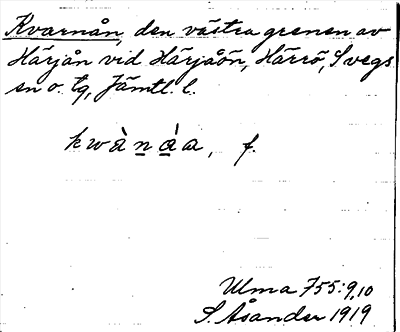 Kvarnån, den västra grenen av
Härjån vid Härjåön, Härrö, Svegs
sn o. tg, Jämtl. l.
kwànáa, f.
Ulma 755:9,10
S. Åsander 1919